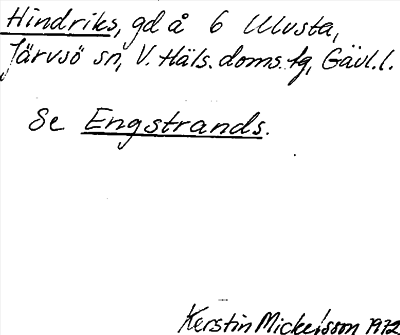 Hindriks, gd å 6 Ulvsta,
Järvsö sn, V. Häls. doms. fg, Gävl. l.
Se Engstrands.
Kerstin Mickelsson 1972